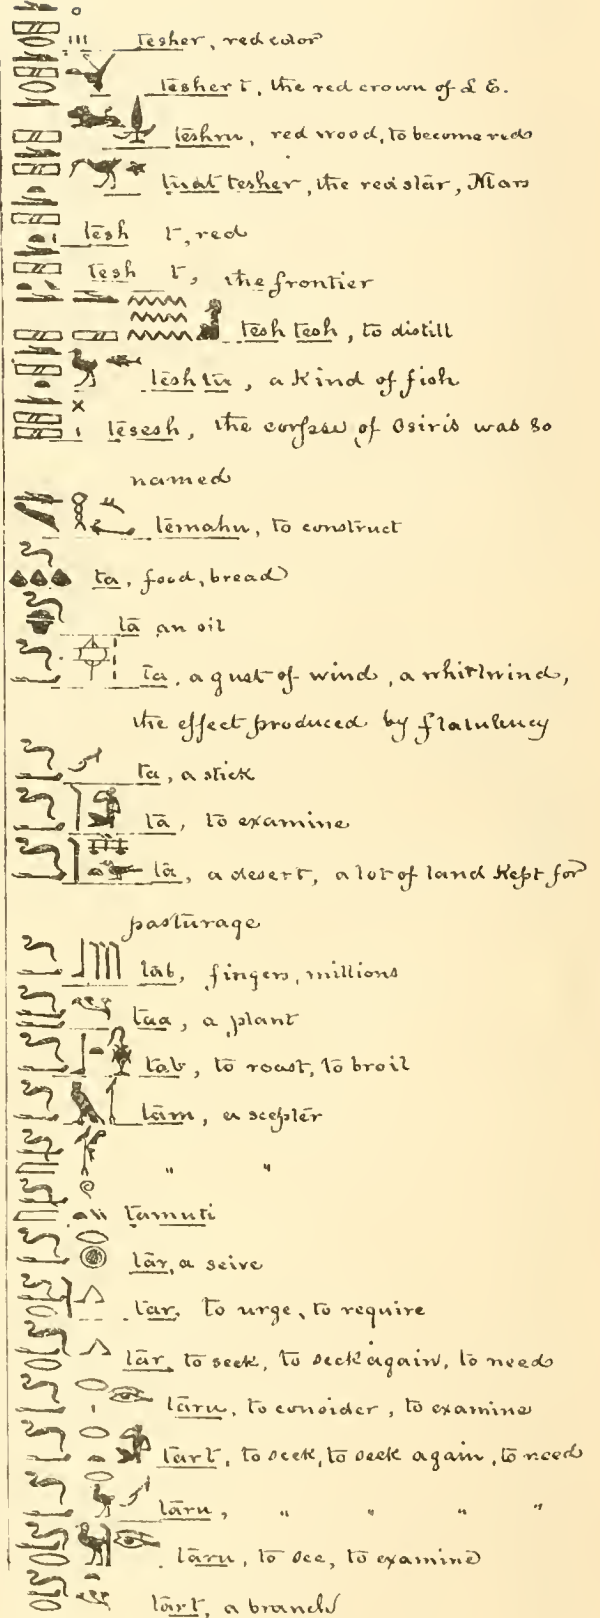 tesher, red color
tesher t, the red crown of L E.
teshru, red wood, to become red
tuat tesher, the red star, Mars
tesh t, red
tesh t, the frontier
tesh tesh, to distill
teshtu, a kind of fish
tesesh, the corpse of Osiris was so
named
temahu, to construct
ta, food, bread
tā an oil
ta, a gust of wind, a whirlwind,
the effect produced by flatulency
ta, a stick
tā, to examine
tā, a desert, a lot of land kept for
pasturage
tāb, fingers, millions
taa, a plant
tab, to roast, to broil
tām, a scepter
" "
tamuti
tār, a seive
tar, to urge, to require
tār, to seek, to seek again, to need
tāru, to consider, to examine
tārt, to seek, to seek again, to need
tāru, " " " "
tāru, to see, to examine
tārt, a branch